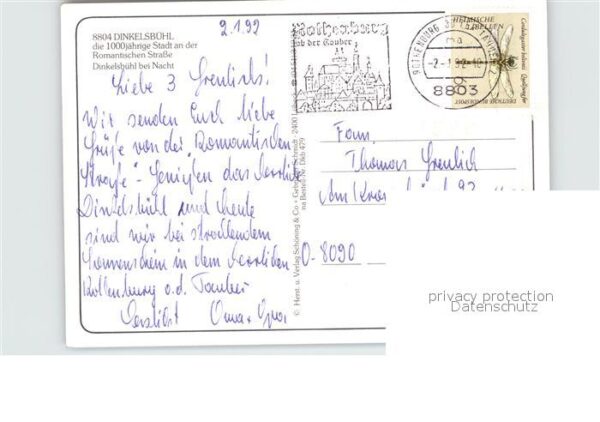 8804 DINKELSBÜHL
die 1000jährige Stadt an der
Romantischen Straße
Dinkelsbühl bei Nacht
2.1.92
Liebe 3
Wir senden Euch liebe
Grüße von der "Romantischen
Straße" - Genießen das herrliche
Dinkelsbühl und heute
sind wir bei strahlendem
Sonnenschein in dem herrlichen
Rothenburg o.d. Tauber
Herzlichst Oma + Opa
© Herst. u. Verlag Schöning & Co + Gebrüder Schmidt · 2400
na Bestell-Nr. Dkb 479
Rothenburg
ob der Tauber
8803
HEIMISCHE
LIBELLEN
DEUTSCHE BUNDESPOST
Fam.
Thomas
D-8090
privacy protection
Datenschutz